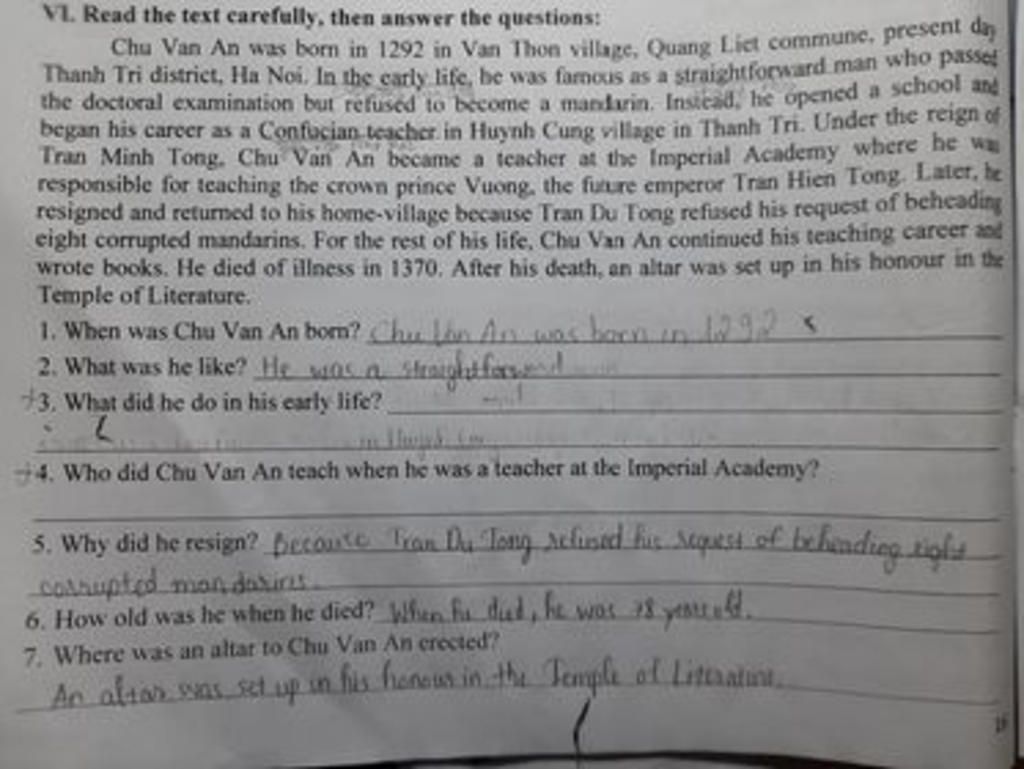 VI. Read the text carefully, then answer the questions:
Chu Van An was born in 1292 in Van Thon village, Quang Liet commune, present day
Thanh Tri district, Ha Noi. In the early life, he was famous as a straightforward man who passed
the doctoral examination but refused to become a mandarin. Instead, he opened a school and
began his career as a Confucian teacher in Huynh Cung village in Thanh Tri. Under the reign of
Tran Minh Tong, Chu Van An became a teacher at the Imperial Academy where he was
responsible for teaching the crown prince Vuong, the future emperor Tran Hien Tong. Later, he
resigned and returned to his home-village because Tran Du Tong refused his request of beheading
eight corrupted mandarins. For the rest of his life, Chu Van An continued his teaching career and
wrote books. He died of illness in 1370. After his death, an altar was set up in his honour in the
Temple of Literature.
1. When was Chu Van An born? Chu Van An was born in 1292
2. What was he like? He was a straightforward
3. What did he do in his early life?
4. Who did Chu Van An teach when he was a teacher at the Imperial Academy?
5. Why did he resign? Because Tran Du Tong refused his request of beheading eight
corrupted mandarins.
6. How old was he when he died? When he died, he was 78 years old.
7. Where was an altar to Chu Van An erected?
An altar was set up in his honour in the Temple of Literature.